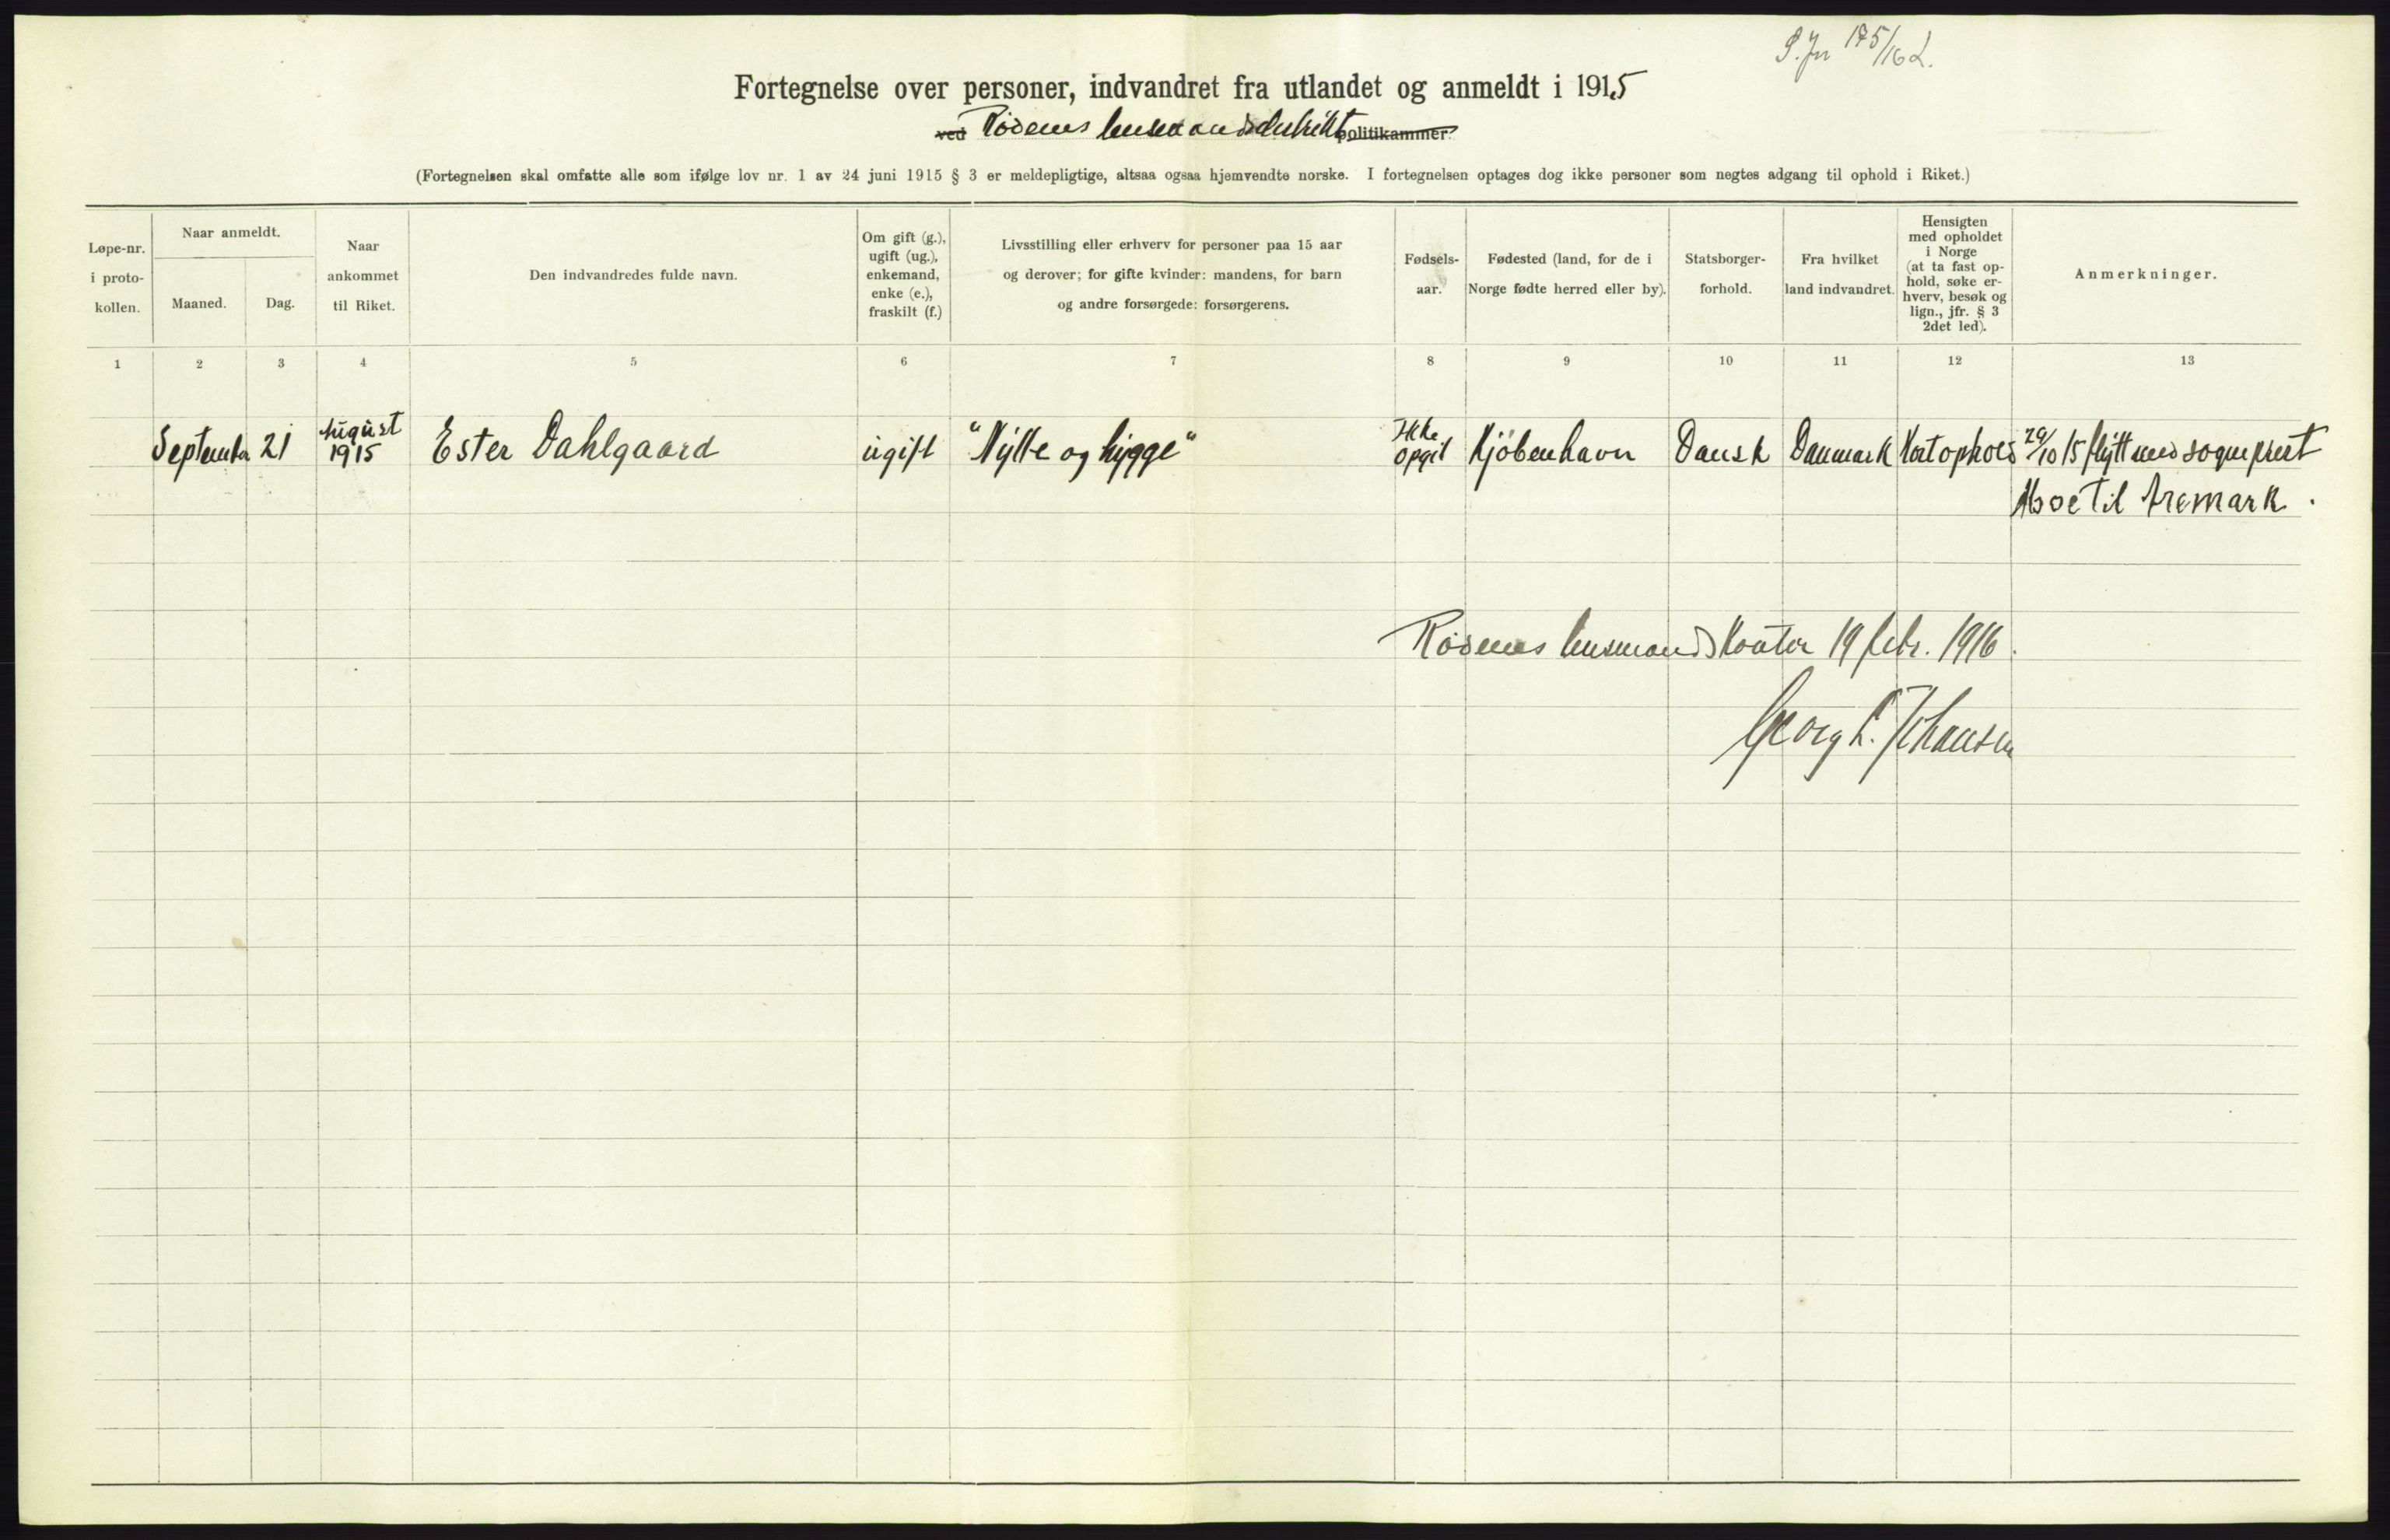 S. Jn 175/16 L.
Fortegnelse over personer, indvandret fra utlandet og anmeldt i 1915
ved Rødenes lensmandsdistrikt politikammer
(Fortegnelsen skal omfatte alle som ifølge lov nr. 1 av 24 juni 1915 § 3 er meldepligtige, altsaa ogsaa hjemvendte norske. I fortegnelsen optages dog ikke personer som negtes adgang til ophold i Riket.)
Løpe-nr.
i proto-
kollen.
Naar anmeldt.
Maaned.
Dag.
Naar
ankommet
til Riket.
Den indvandredes fulde navn.
Om gift (g.),
ugift (ug.),
enkemand,
enke (e.),
fraskilt (f.)
Livsstilling eller erhverv for personer paa 15 aar
og derover; for gifte kvinder: mandens, for barn
og andre forsørgede: forsørgerens.
Fødsels-
aar.
Fødested (land, for de i
Norge fødte herred eller by).
Statsborger-
forhold.
Fra hvilket
land indvandret.
Hensigten
med opholdet
i Norge
(at ta fast op-
hold, søke er-
hverv, besøk og
lign., jfr. § 3
2det led).
Anmerkninger.
1 2 3 4 5 6 7 8 9 10 11 12 13
September 21 August 1915 Ester Dahlgaard ugift "Nytte og hygge" Ikke opgit Kjöbenhavn Dansk Danmark Kort ophold 29/10 15 flytt med sogneprest
Moe til Aremark.
Rødenes lensmandskontor 19 febr. 1916.
Georg L. Johansen